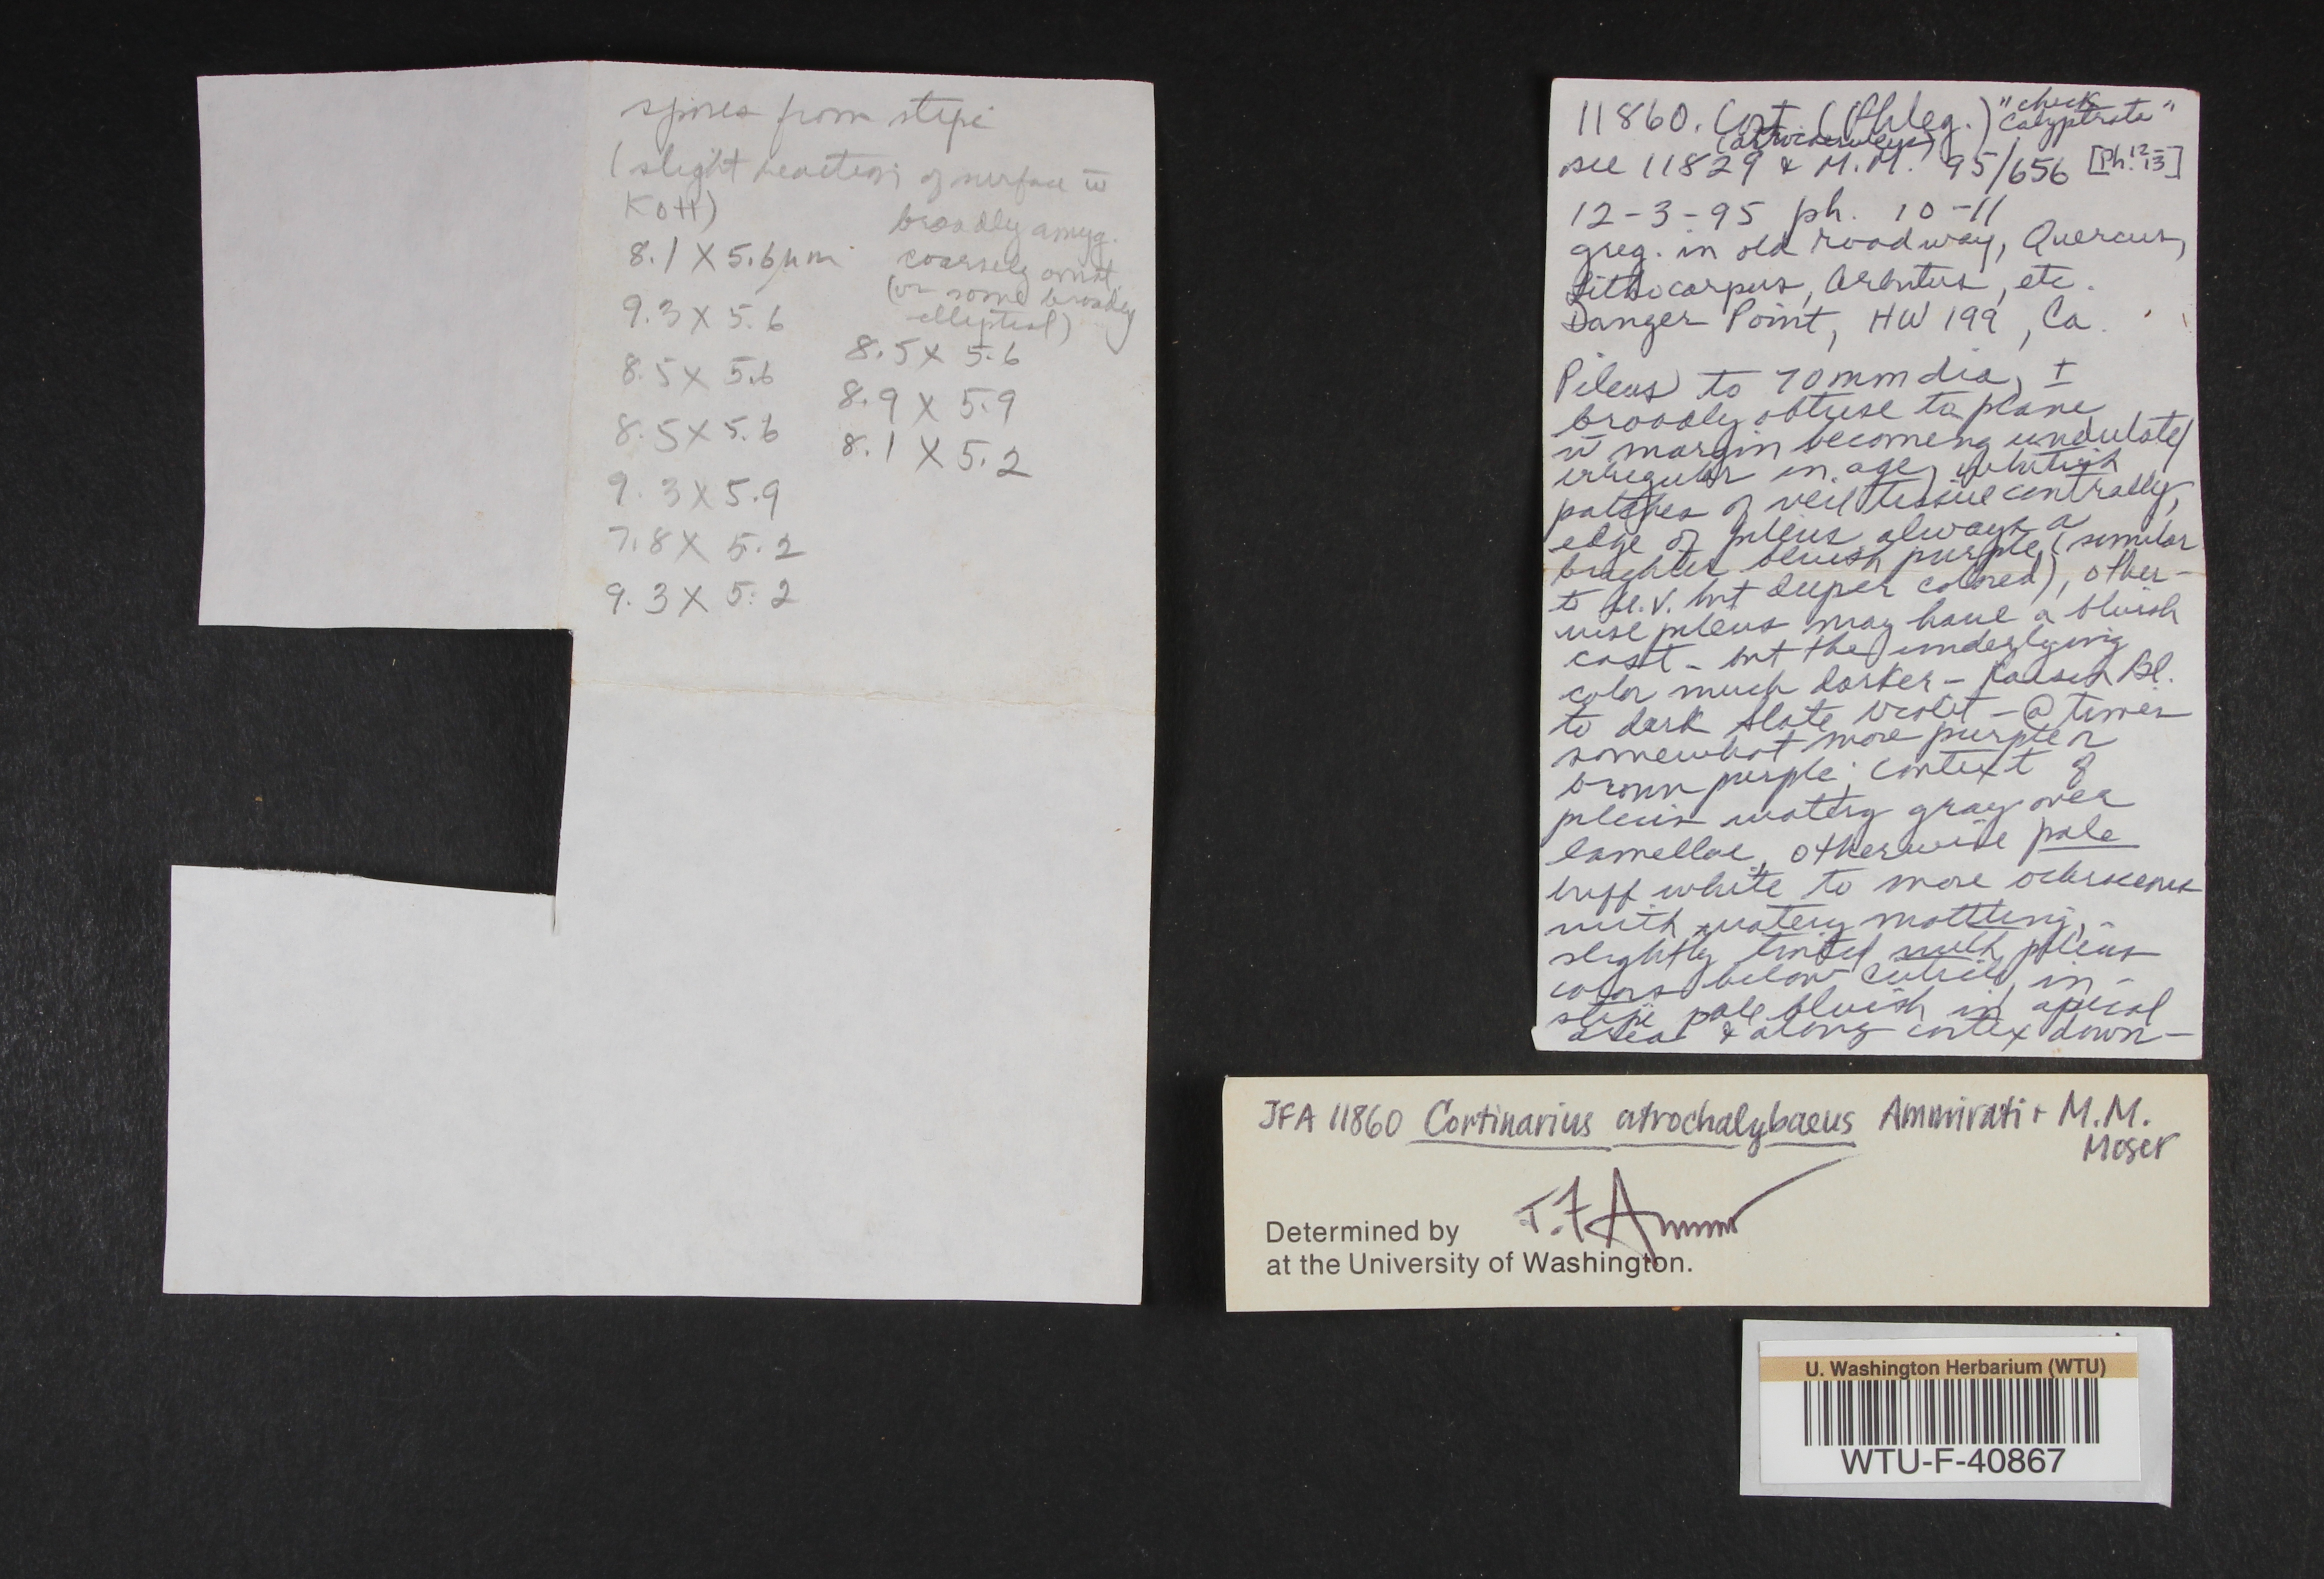 spores from stipe
(slight reaction of surface w̄
KOH)
broadly amyg.
coarsely ornat.
(or some broadly
elliptical)
8.1 X 5.6 µm
9.3 X 5.6
8.5 X 5.6
8.5 X 5.6
9.3 X 5.9
7.8 X 5.2
9.3 X 5.2
8.5 X 5.6
8.9 X 5.9
8.1 X 5.2
11860. Cort. (Phleg.) "check calyptrate"
see 11829 & M.M. 95/656 [Ph. 12-13]
12-3-95 ph. 10-11
greg. in old roadway, Quercus,
Lithocarpus, Arbutus, etc.
Danger Point, HW 199, Ca.
Pileus to 70 mm dia, ±
broadly obtuse to plane,
w̄ margin becoming undulate/
irregular in age, whitish
patches of veil tissue centrally,
edge of pileus always a
brighter bluish purple (similar
to but deeper colored), other-
wise pileus may have a bluish
cast - but the underlying
color much darker - Raisin Bl.
to dark slate violet - @ times
somewhat more purple or
brown purple; context of
pileus watery gray over
lamellae, otherwise pale
buff white to more ochraceous
with watery mottling,
slightly tinted with pileus
colors below cuticle, in
stipe pale bluish in apical
area & along cortex down-
JFA 11860 Cortinarius atrochalybaeus Ammirati + M.M.
Moser
Determined by J.F. Ammir
at the University of Washington.
U. Washington Herbarium (WTU)
WTU-F-40867